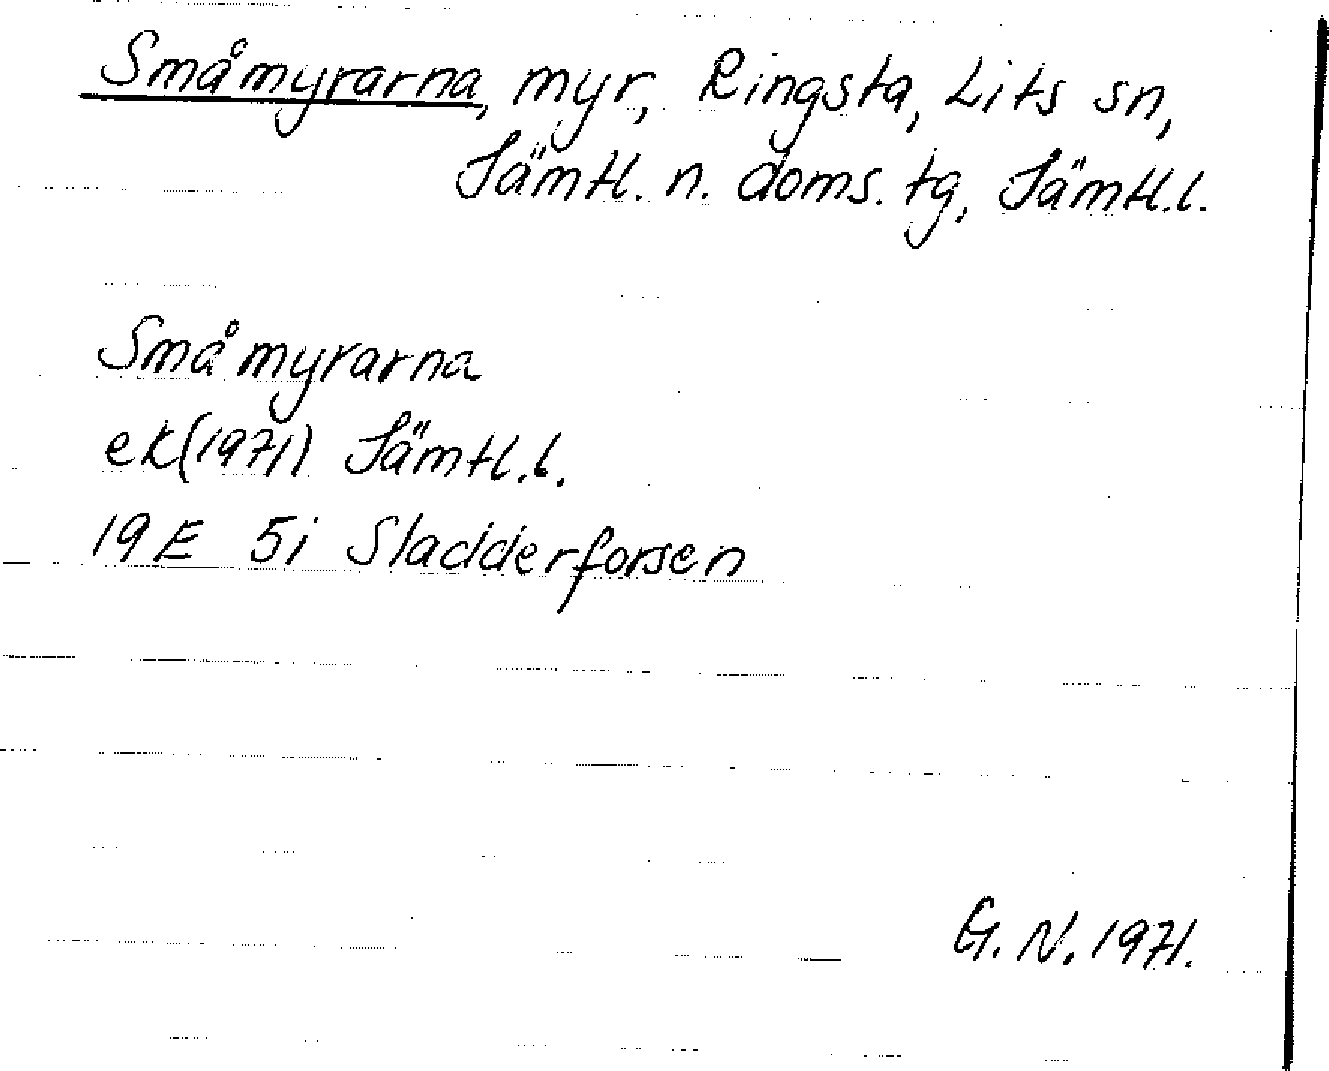 Småmyrarna, myr, Ringsta, Lits sn,
Jämtl. n. doms. tg, Jämtl.l.
Småmyrarna
ek(1971) Jämtl.l.
19E 5i Sladderforsen
G.N. 1971.